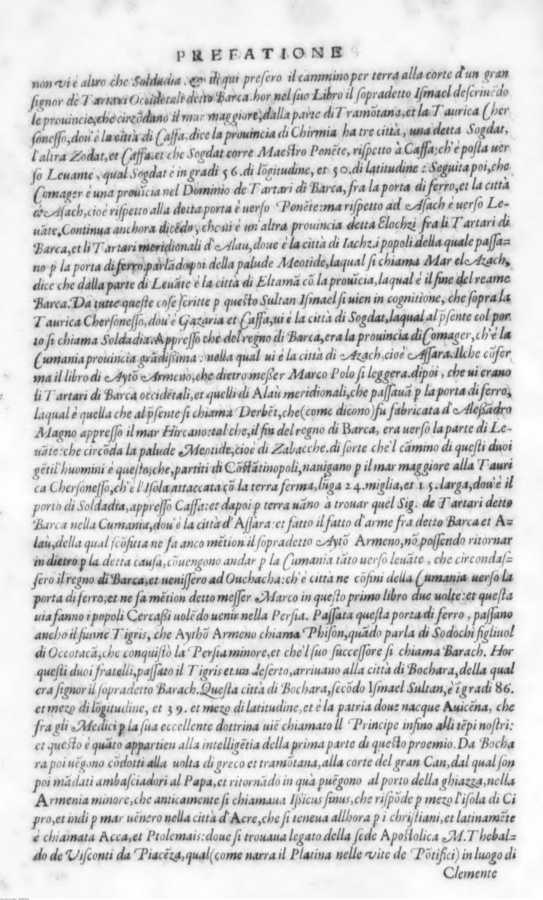 PREFATIONE
non vi è altro che Soldadia, & di qui presero il cammino per terra alla corte d'un gran
signor de Tartari Occidẽtali detto Barca. hor nel suo Libro il sopradetto Ismael descriuẽdo
le prouincie, che cinzõdano il mar maggiore, dalla parte di Tramõtana, et la Taurica Cher
sonesso, dou'è la città di Caffa, dice la prouincia di Chirmia ha tre città, una detta Sogdat,
l'altra Zodat, et Caffa. et che Sogdat corre Maestro Ponẽte, rispetto à Caffa: ch'è posta uer
so Leuante, qual Sogdat è in gradi 56. di lõgitudine, et 50. di latitudine: Seguita poi, che
Comager è una prouĩcia nel Dominio de Tartari di Barca, fra la porta di ferro, et la città
d'Asach, cioè rispetto alla detta porta è uerso Ponẽte: ma rispetto ad Asach è uerso Le-
uãte. Continua anchora dicẽdo, che ui è un altra prouincia detta Elochzi fra li Tartari di
Barca, et li Tartari meridionali d'Alau, doue è la città di Iachz, popoli della quale passa-
no p la porta di ferro. parlãdo poi della palude Meotide, laqual si chiama Mar el Azach,
dice che dalla parte di Leuãte è la città di Eltamã cõ la prouĩcia, laqual è il fine del reame
Barca. Da tutte queste cose scritte p questo Sultan Ismael si uien in cognitione, che sopra la
Taurica Chersonesso, dou'è Gazaria et Caffa, ui è la città di Sogdat, laqual al p̃sente col por
to si chiama Soldadia. Appresso che del regno di Barca, era la prouincia di Comager, ch'è la
Cumania prouincia grãdissima: nella qual ui è la città di Azach, cioè Assara. Ilche cõfer
ma il libro di Aytõ Armeno, che dietro messer Marco Polo si leggera. dipoi, che ui erano
li Tartari di Barca occidẽtali, et quelli di Alaù meridionali, che passauã p la porta di ferro,
laqual è quella che al p̃sente si chiama Derbẽt, che (come dicono) fu fabricata d'Alessãdro
Magno appresso il mar Hircano: tal che, il fin del regno di Barca, era uerso la parte di Le-
uãte: che circõda la palude Meotide, cioè di Zabacche. di sorte che'l cãmino di questi duoi
gẽtil'huomini è questo; che, partiti di Cõstãtinopoli, nauigano p il mar maggiore alla Tauri
ca Chersonesso, ch'è l'Isola attaccata cõ la terra ferma, lũga 24. miglia, et 15. larga, dou'è il
porto di Soldadia, appresso Caffa: et dapoi p terra uãno à trouar quel Sig. de Tartari detto
Barca nella Cumania, dou'è la città d'Assara: et fatto il fatto d'arme fra detto Barca et A-
laù, della qual scõfitta ne fa anco mẽtion il sopradetto Aytõ Armeno, nõ possendo ritornar
in dietro p la detta causa, cõuengono andar p la Cumania tãto uerso leuãte, che circondas-
sero il regno di Barca, et uenissero ad Ouchacha: ch'è città ne cõfini della Cumania uerso la
porta di ferro, et ne fa mẽtion detto messer Marco in questo primo libro due uolte: et questa
uia fanno i popoli Cercassi uolẽdo uenir nella Persia. Passata questa porta di ferro, passano
ancho il fiume Tigris, che Aythõ Armeno chiama Phison, quãdo parla di Sodochi figliuol
di Occotacã, che conquistò la Persia minore, et che'l suo successore si chiama Barach. Hor
questi duoi fratelli, passato il Tigris et un deserto, arriuano alla città di Bochara, della qual
era signor il sopradetto Barach. Questa città di Bochara, secõdo Ismael Sultan, è ĩ gradi 86.
et mezo di lõgitudine, et 39. et mezo di latitudine, et è la patria doue nacque Auicẽna, che
fra gli Medici p la sua eccellente dottrina uiẽ chiamato Il Principe infino alli tẽpi nostri:
et questo è quãto appartien alla intelligẽtia della prima parte di questo proemio. Da Bocha
ra poi uẽgono cõdotti alla uolta di greco et tramõtana, alla corte del gran Can, dal qual son
poi mãdati ambasciadori al Papa, et ritornãdo in quà puẽgono al porto della ghiazza, nella
Armenia minore, che anticamente si chiamaua Issicus sinus, che rispõde p mezo l'isola di Ci
pro, et indi p mar uẽnero nella città d'Acre, che si teneua allhora p i christiani, et latinamẽte
è chiamata Acca, et Ptolemais: doue si trouaua legato della sede Apostolica M. Thebal-
do de Visconti da Piacẽza, qual (come narra il Platina nelle uite de Põtifici) in luogo di
Clemente